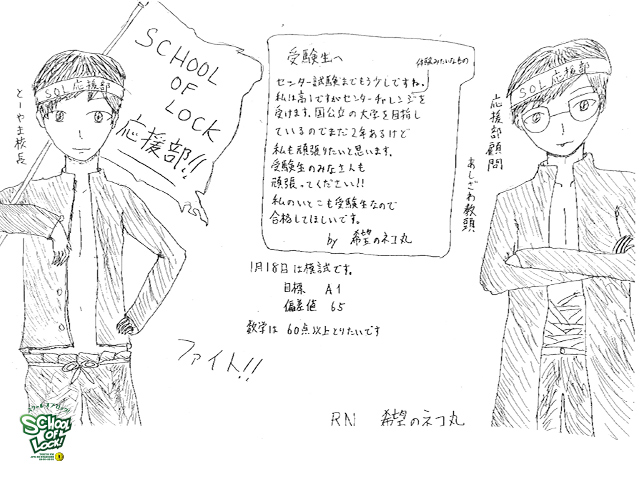 SCHOOL
OF
LOCK
応援部!!
SOL応援部
とーやま校長
受験生へ
体験みたいなもの
センター試験までもう少しですね。
私は高1ですがセンターチャレンジを
受けます。国公立の大学を目指し
ているのでまだ2年あるけど
私も頑張りたいと思います。
受験生のみなさんも
頑張ってください!!
私のいとこも受験生なので
合格してほしいです。
by 希望のネコ丸
SOL応援部
応援部顧問
あしざわ教頭
1月18日は模試です。
目標 A1
偏差値 65
数学は 60点以上とりたいです
ファイト!!
RN 希望のネコ丸
SCHOOL
OF
LOCK!